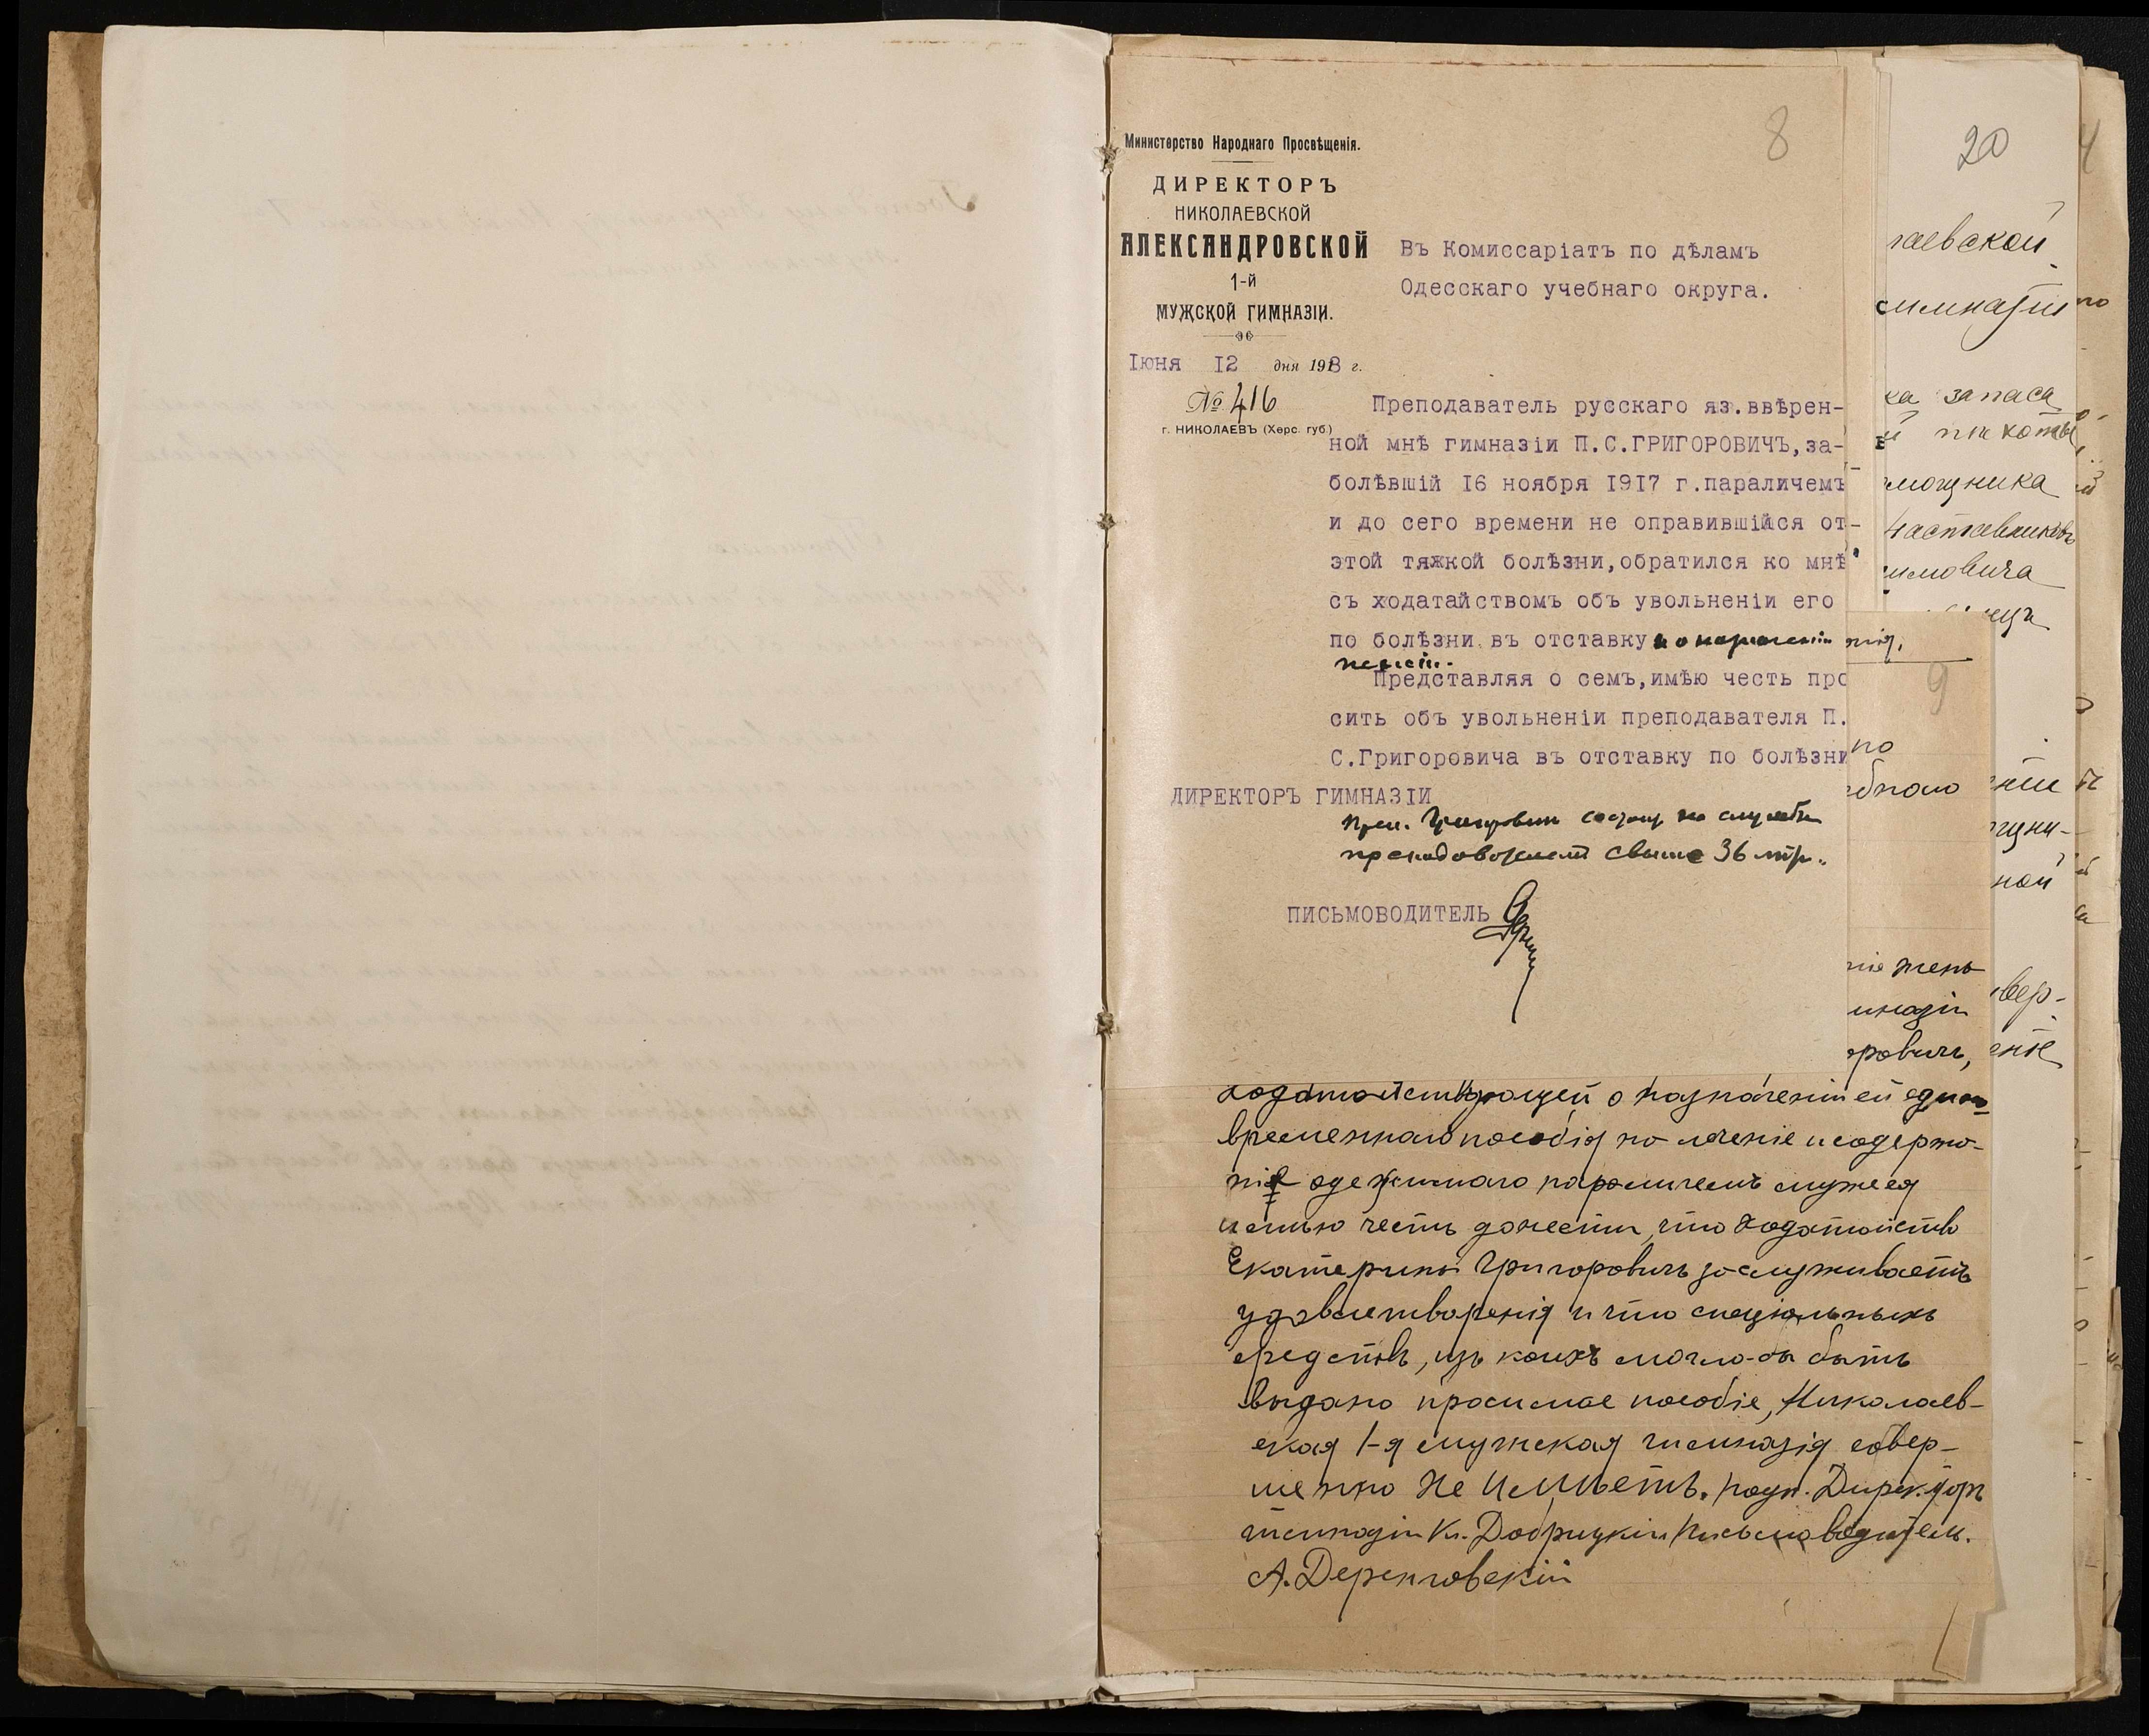 8
Министерство Народнаго Просвѣщенія.
ДИРЕКТОРЪ
НИКОЛАЕВСКОЙ
АЛЕКСАНДРОВСКОЙ
1-й
МУЖСКОЙ ГИМНАЗІИ.
Іюня 12 дня 1918 г.
№ 416
г. НИКОЛАЕВЪ (Херс. губ.)
Въ Комиссаріатъ по дѣламъ
Одесскаго учебнаго округа.
Преподаватель русскаго яз.ввѣрен-
ной мнѣ гимназіи П.С.ГРИГОРОВИЧЪ,за-
болѣвшій 16 ноября 1917 г.параличемъ
и до сего времени не оправившійся от-
этой тяжкой болѣзни,обратился ко мнѣ
съ ходатайствомъ объ увольненіи его
по болѣзни въ отставку и о назначеніи
пенсіи.
Представляя о семъ,имѣю честь про
сить объ увольненіи преподавателя П.
С.Григоровича въ отставку по болѣзни
ДИРЕКТОРЪ ГИМНАЗІИ
преп. Григорович на службе
свыше 36 лѣт.
ПИСЬМОВОДИТЕЛЬ
ходатайствующей о назначеніи ей едино
временнаго пособія на леченіе и содержа-
ніе одержимаго параличемъ мужа ея
имѣю честь донести, что ходатайство
Екатерины Григоровичъ заслуживаетъ
удовлетворенія и что спеціальныхъ
средствъ, изъ коихъ могло-бы быть
выдано просимое пособіе, Николаев-
ская 1-я мужская гимназія совер-
шенно не имѣетъ. подп. Директоръ
гимназіи Кл. Добрицкій Письмоводитель.
А. Деренговскій
20
лаевской
гимназіи
ка запаса
пѣхоты
мощника
наставниковъ
имовича
9
по
бнаго
жены
имназіи
оровичъ,
ной
вер-